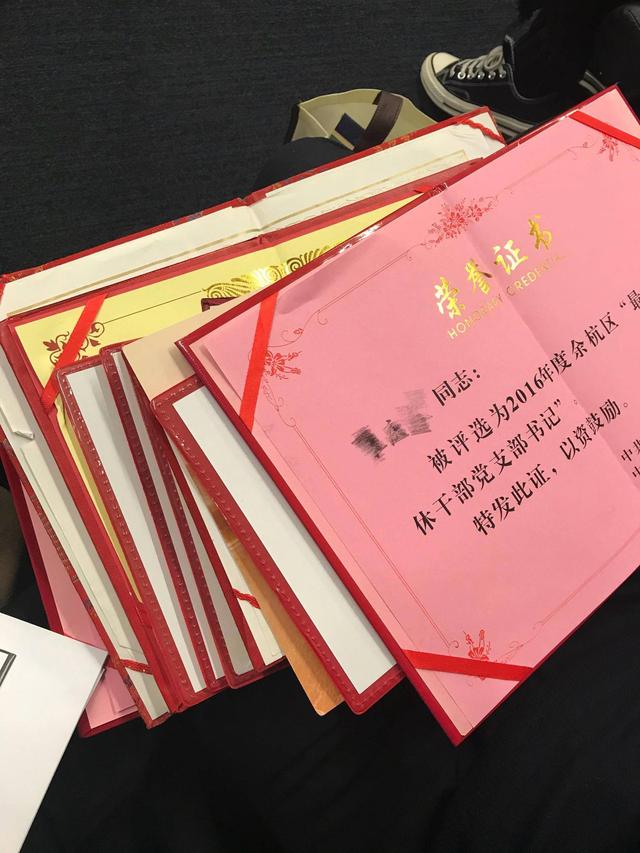 荣誉证书
HONORARY CREDENTIAL
同志：
被评选为2016年度余杭区“最
休干部党支部书记”。
特发此证，以资鼓励。
中共